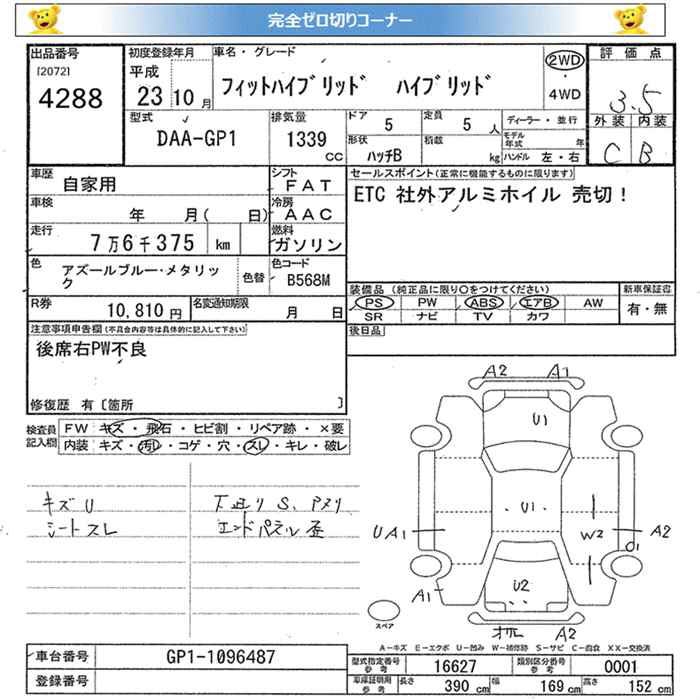 完全ゼロ切りコーナー
出品番号
[2072]
4288
初度登録年月
平成
23 10 月
車名・グレード
フィットハイブリッド ハイブリッド
2WD
・
4WD
評価点
3.5
外装 内装
C B
型式
DAA-GP1
排気量
1339
CC
ドア
5
定員
5 人
形状
ハッチB
積載
kg
ディーラー・並行
モデル
年式 年
ハンドル 左・右
車歴
自家用
シフト
FAT
車検
年 月( 日)
冷房
AAC
走行
7万6千375 km
燃料
ガソリン
色
アズールブルー・メタリック
色替
色コード
B568M
R券
10,810 円
名変通知期限
月 日
セールスポイント(正常に機能するものに限ります)
ETC 社外アルミホイル 売切!
装備品(純正品に限り○をつけてください)
PS PW ABS エアB AW
SR ナビ TV カワ
新車保証書
有・無
後日品
注意事項申告欄(不具合内容等は具体的に記入して下さい)
後席右PW不良
修復歴 有〔箇所 〕
検査員
記入欄
FW キズ・飛石・ヒビ割・リペア跡・×要
内装 キズ・汚レ・コゲ・穴・スレ・キレ・破レ
キズ U
シートスレ
下廻り S、アメリ
エンドパネル歪
A2 A1
U1
U1
UA1
W2
A2
A1
U2
A2
スペア
A-キズ E-エクボ U-凹み W-補修跡 S-サビ C-腐食 XX-交換済
車台番号
GP1-1096487
登録番号
型式指定番号
参考
16627
類別区分番号
参考
0001
車庫証明用
参考
長さ 390 cm
幅 169 cm
高さ 152 cm